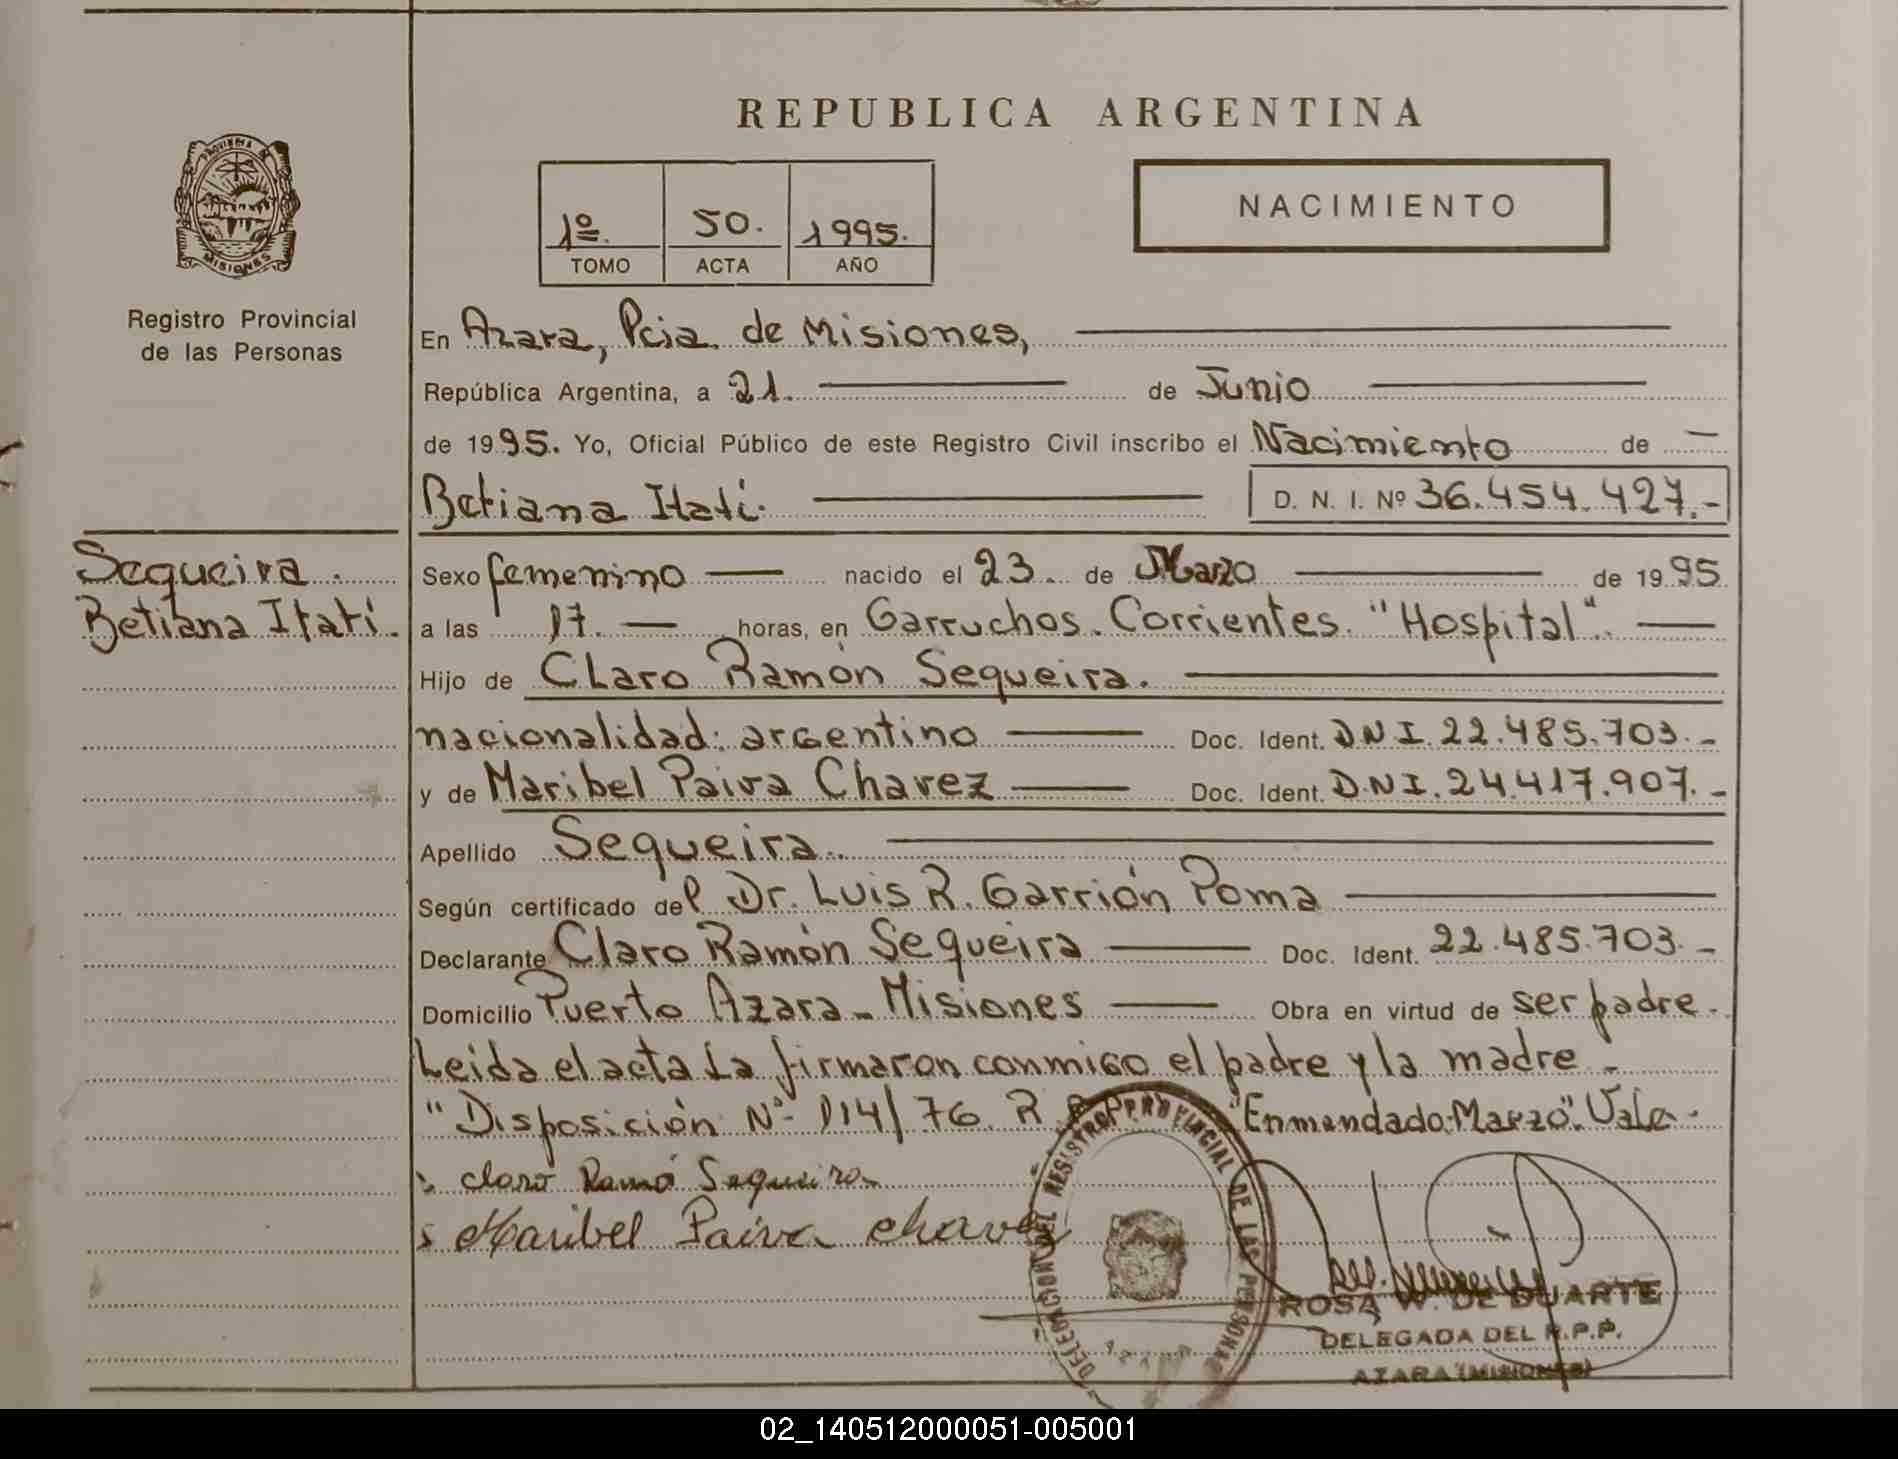 REPUBLICA ARGENTINA
PROVINCIA DE
MISIONES
Registro Provincial
de las Personas
1º. 50. 1995.
TOMO ACTA AÑO
NACIMIENTO
En Azara, Pcia. de Misiones,
República Argentina, a 21. de Junio
de 1995. Yo, Oficial Público de este Registro Civil inscribo el Nacimiento de —
Betiana Itatí. D. N. I. Nº 36.454.427.-
Sequeira.
Betiana Itatí.
Sexo femenino — nacido el 23. de Marzo de 1995
a las 17. — horas, en Garruchos. Corrientes. "Hospital". —
Hijo de Claro Ramón Sequeira.
nacionalidad: argentino — Doc. Ident. DNI. 22.485.703.-
y de Maribel Paiva Chavez — Doc. Ident. D.N.I. 24.417.907.-
Apellido Sequeira.
Según certificado del Dr. Luis R. Garrión Poma
Declarante Claro Ramón Sequeira — Doc. Ident. 22.485.703.-
Domicilio Puerto Azara - Misiones — Obra en virtud de ser padre.
Leida el acta La firmaron conmigo el padre y la madre.-
"Disposición Nº 114/76. R.P.P." "Enmendado: Marzo". Vale.
Claro Ramó Sequeira
Maribel Paiva Chavez
DELEGACION DEL REGISTRO PROVINCIAL DE LAS PERSONAS
AZARA
ROSA W. DE DUARTE
DELEGADA DEL R.P.P.
AZARA (MISIONES)
02_140512000051-005001